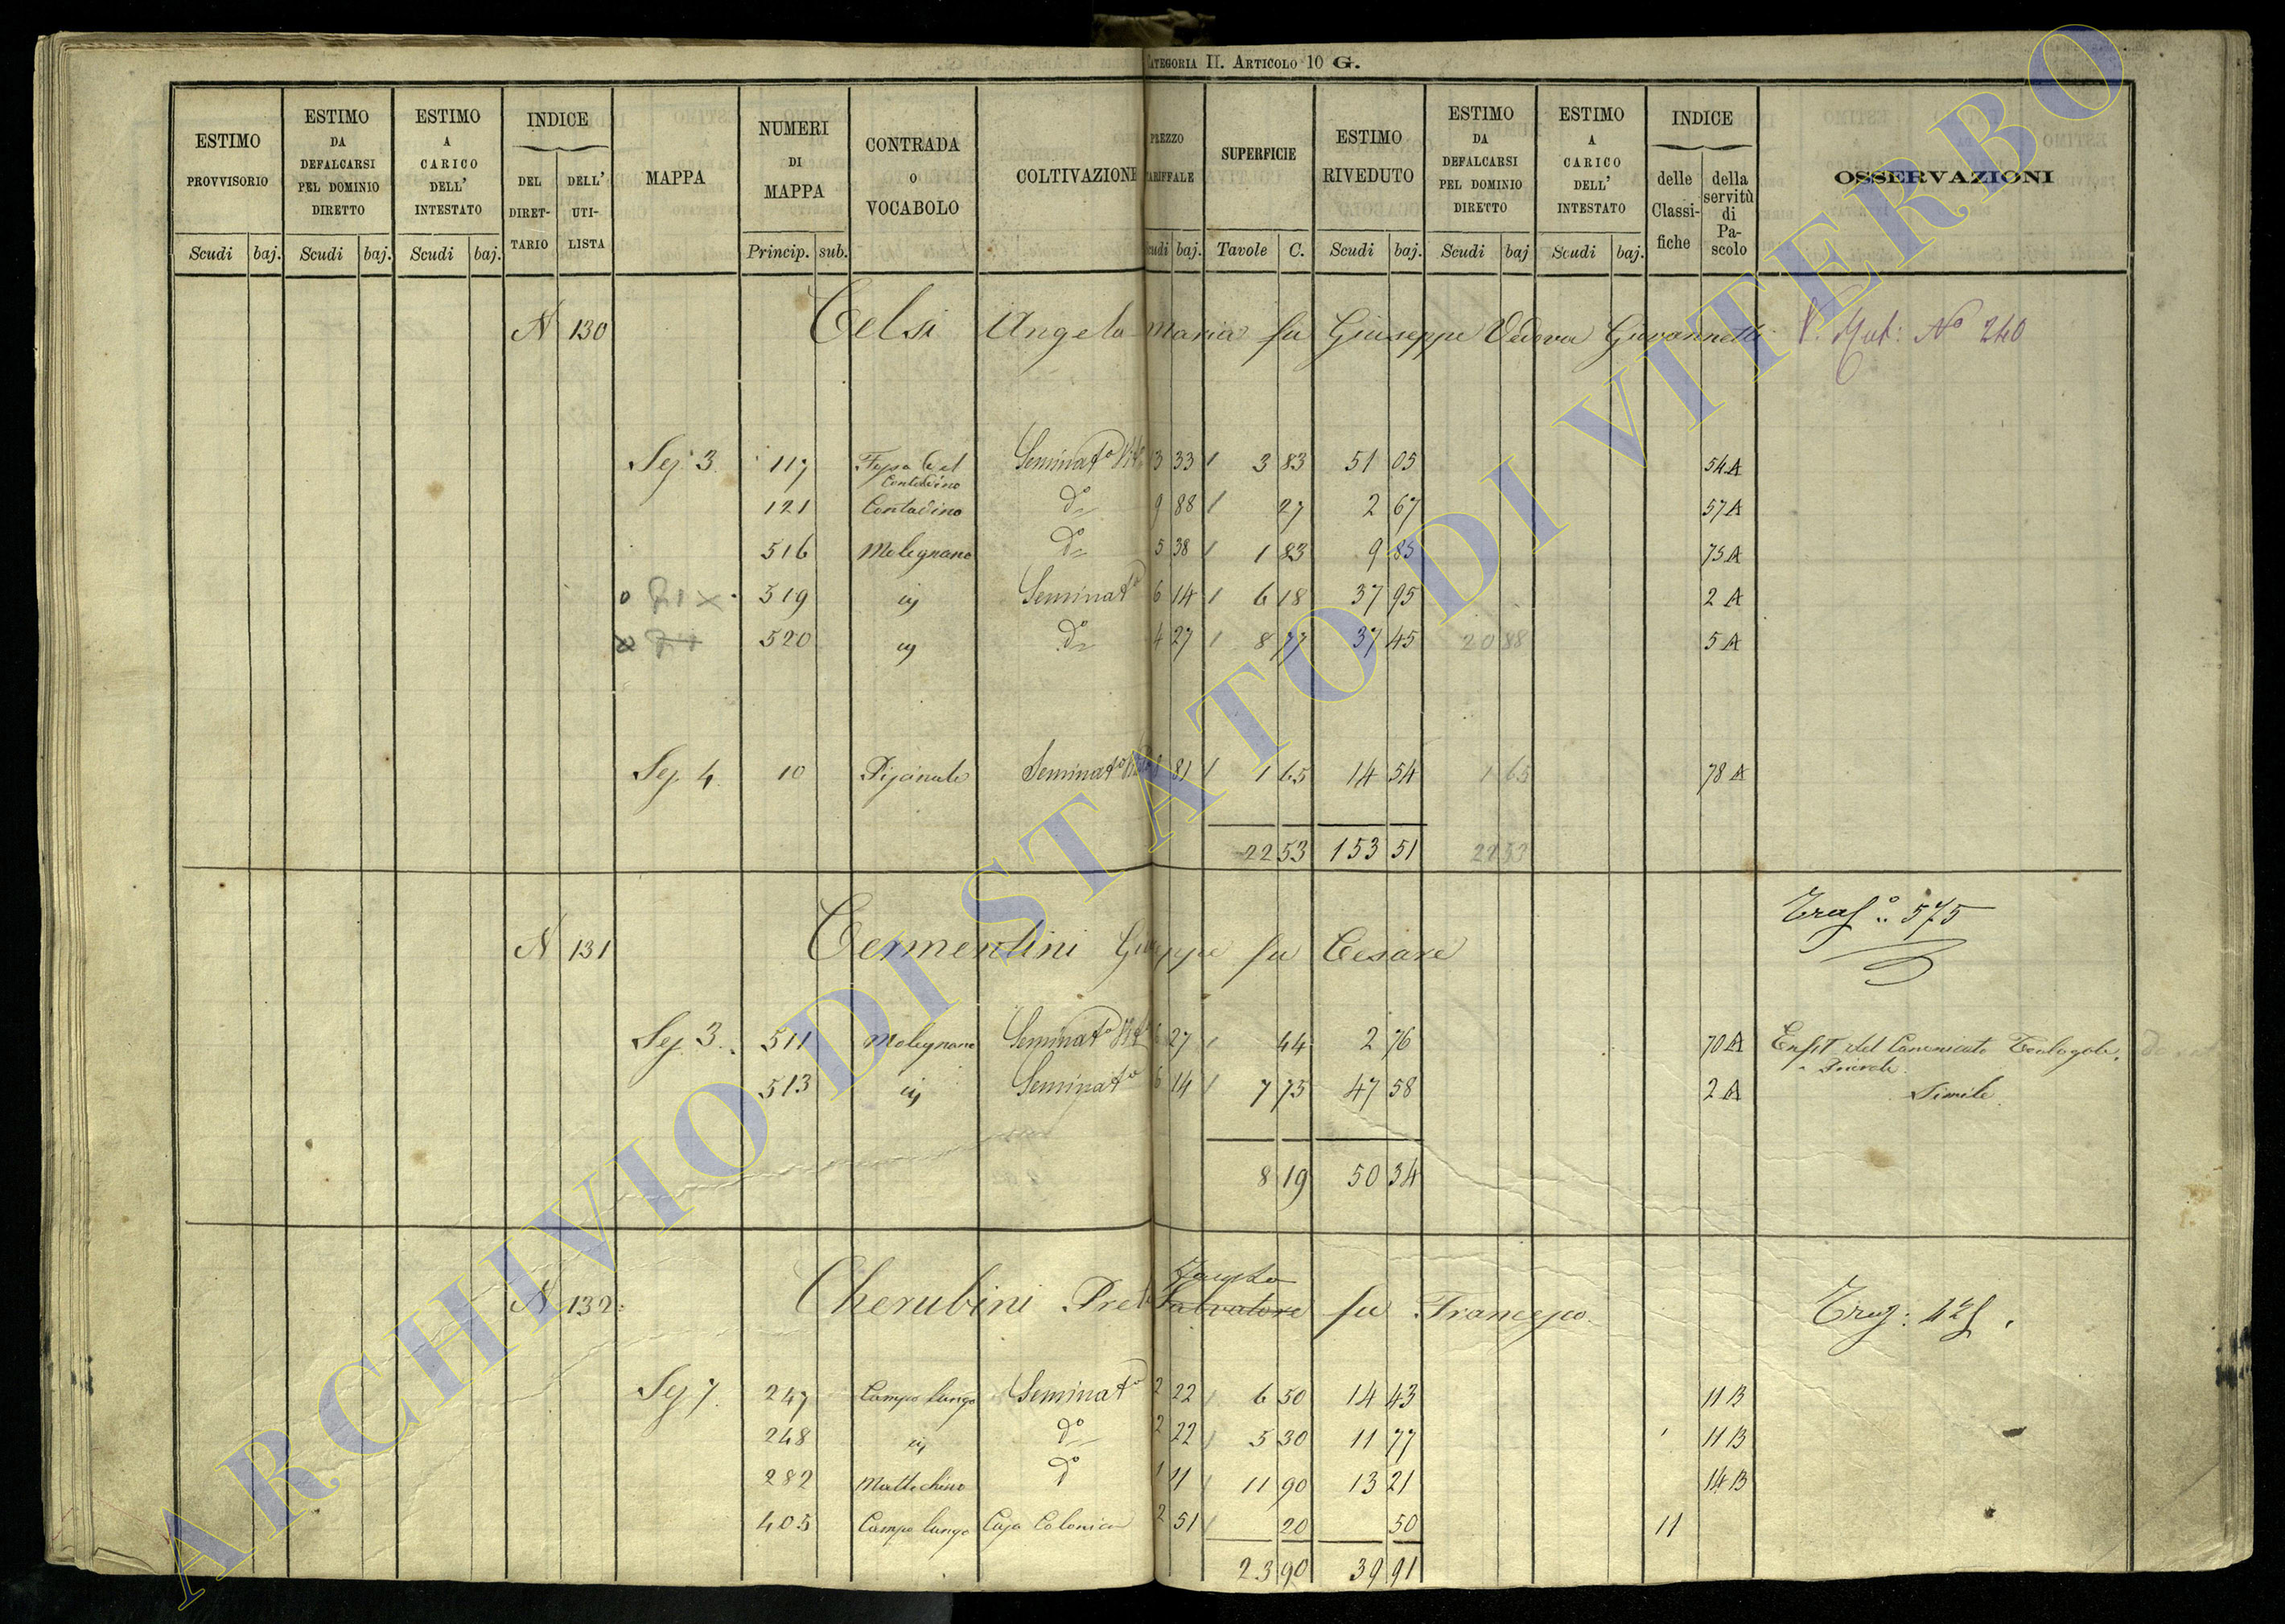 CATEGORIA II. ARTICOLO 10 G.
ESTIMO PROVVISORIO Scudi baj.
ESTIMO DA DEFALCARSI PEL DOMINIO DIRETTO Scudi baj.
ESTIMO A CARICO DELL' INTESTATO Scudi baj.
INDICE DEL DIRET-TARIO DELL' UTI-LISTA
MAPPA
NUMERI DI MAPPA Princip. sub.
CONTRADA O VOCABOLO
COLTIVAZIONE
PREZZO TARIFFALE Scudi baj.
SUPERFICIE Tavole C.
ESTIMO RIVEDUTO Scudi baj.
ESTIMO DA DEFALCARSI PEL DOMINIO DIRETTO Scudi baj
ESTIMO A CARICO DELL' INTESTATO Scudi baj.
INDICE delle Classi-fiche della servitù di Pa-scolo
OSSERVAZIONI
N 130 Celsi Angela Maria fu Giuseppe Vedova Giovannetti V. Mut: N° 240
Sez. 3. 117 Contadino Seminat° Vit° 33 3 83 51 05 54 A
121 Contadino d° 9 88 27 2 67 57 A
516 Molegnano d° 5 38 1 83 9 85 75 A
519 Seminat° 6 14 6 18 37 95 2 A
520 d° 4 27 8 77 37 45 20 88 5 A
Sez. 4. 10 Piscinale Seminat° 81 1 65 14 54 1 65 78 A
22 53 153 51 22 53
N 131 Cermentini Giuseppe fu Cesare Tras° 575
Sez. 3. 511 Molegnano Seminat° Vit° 6 27 44 2 76 70 A Enfit del Canonicato Teologale
513 Seminat° 6 14 7 75 47 58 2 A Simile.
8 19 50 34
Fausto
N 132 Cherubini Prete Salvatore fu Francesco
Sez. 7. 247 Campo lungo Seminat° 2 22 6 50 14 43 11 B
248 d° 2 22 5 30 11 77 11 B
282 Mattechino d° 1 11 11 90 13 21 14 B
405 Campo lungo Casa Colonica 2 51 20 50 11
23 90 39 91
ARCHIVIO DI STATO DI VITERBO